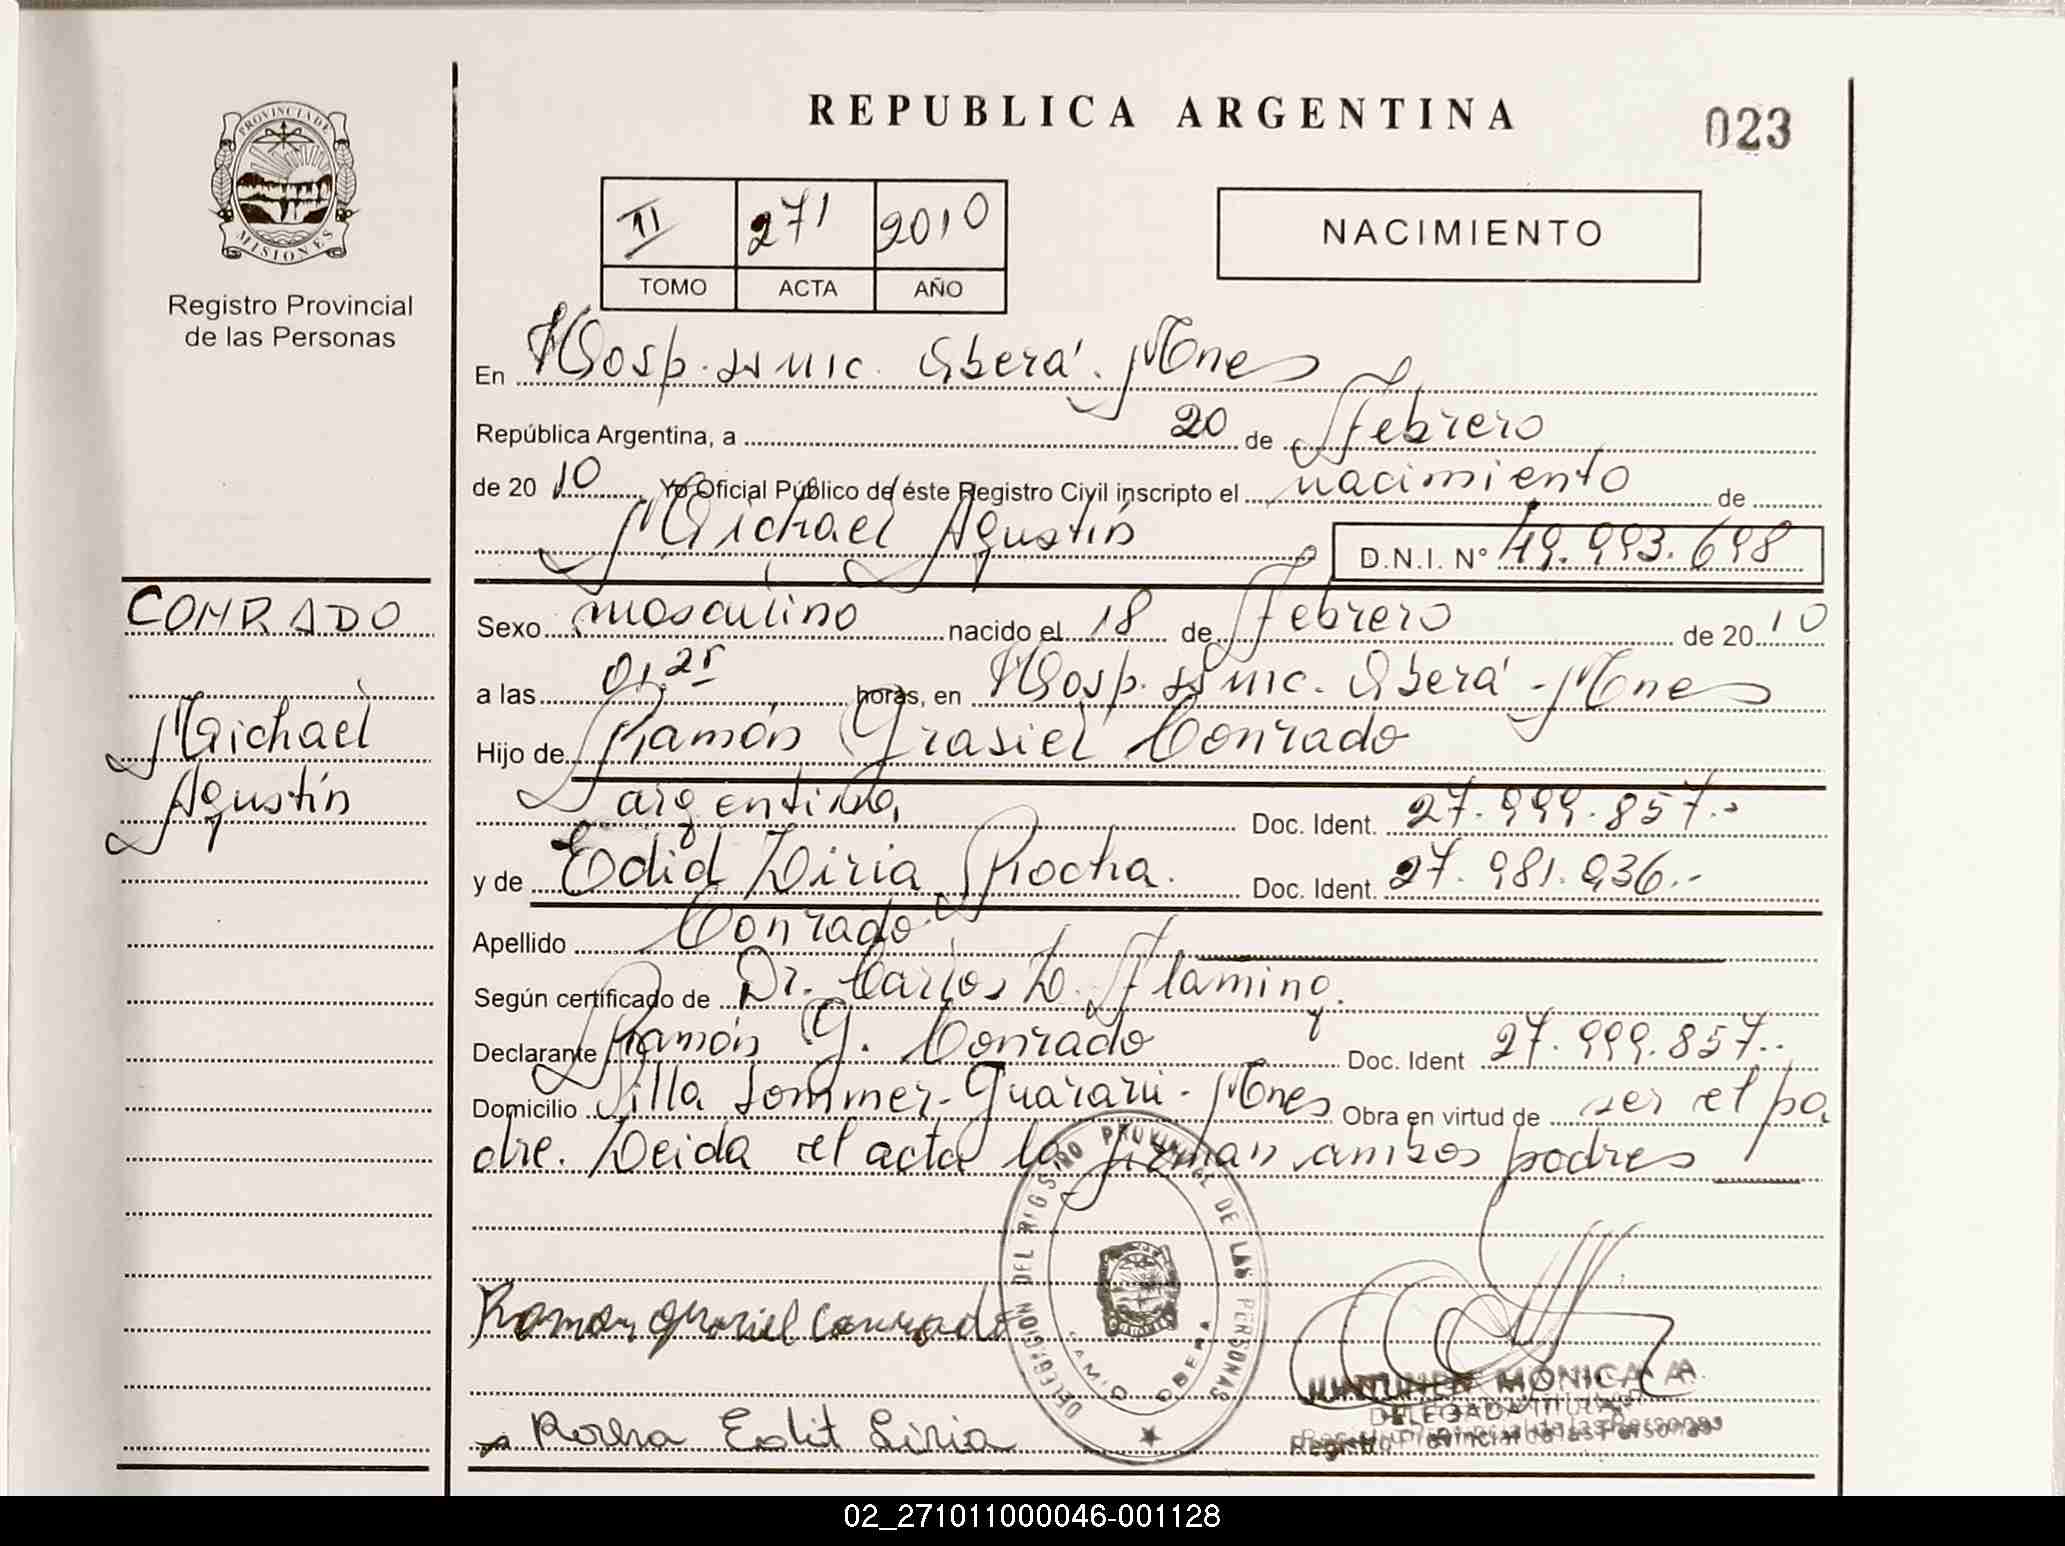 REPUBLICA ARGENTINA
023
PROVINCIA DE MISIONES
Registro Provincial
de las Personas
II 271 2010
TOMO ACTA AÑO
NACIMIENTO
En Hosp. ss mic. Oberá. Mnes
República Argentina, a 20 de Febrero
de 2010 Yo Oficial Público de éste Registro Civil inscripto el nacimiento de
Maichael Agustín D.N.I. N° 49.993.698
CONRADO
Maichael
Agustín
Sexo masculino nacido el 18 de Febrero de 2010
a las 01,25 horas, en Hosp. ss mic. Oberá - Mnes
Hijo de Ramón Grasiel Conrado
argentino, Doc. Ident. 27.999.857.-
y de Edid Liria Rocha. Doc. Ident. 27.981.936.-
Apellido Conrado
Según certificado de Dr. Carlos L. Flaming.
Declarante Ramón G. Conrado Doc. Ident 27.999.857.-
Domicilio Villa Sommer - Guaraní - Mnes Obra en virtud de ser el pa
dre. Leida el acta la firman ambos padres
DELEGACION DEL REGISTRO PROVINCIAL DE LAS PERSONAS
OBERA
Ramon Grasiel Conrado
Rocha Edit Liria
MONICA A.
DELEGADA TITULAR
Registro Provincial de las Personas
02_271011000046-001128